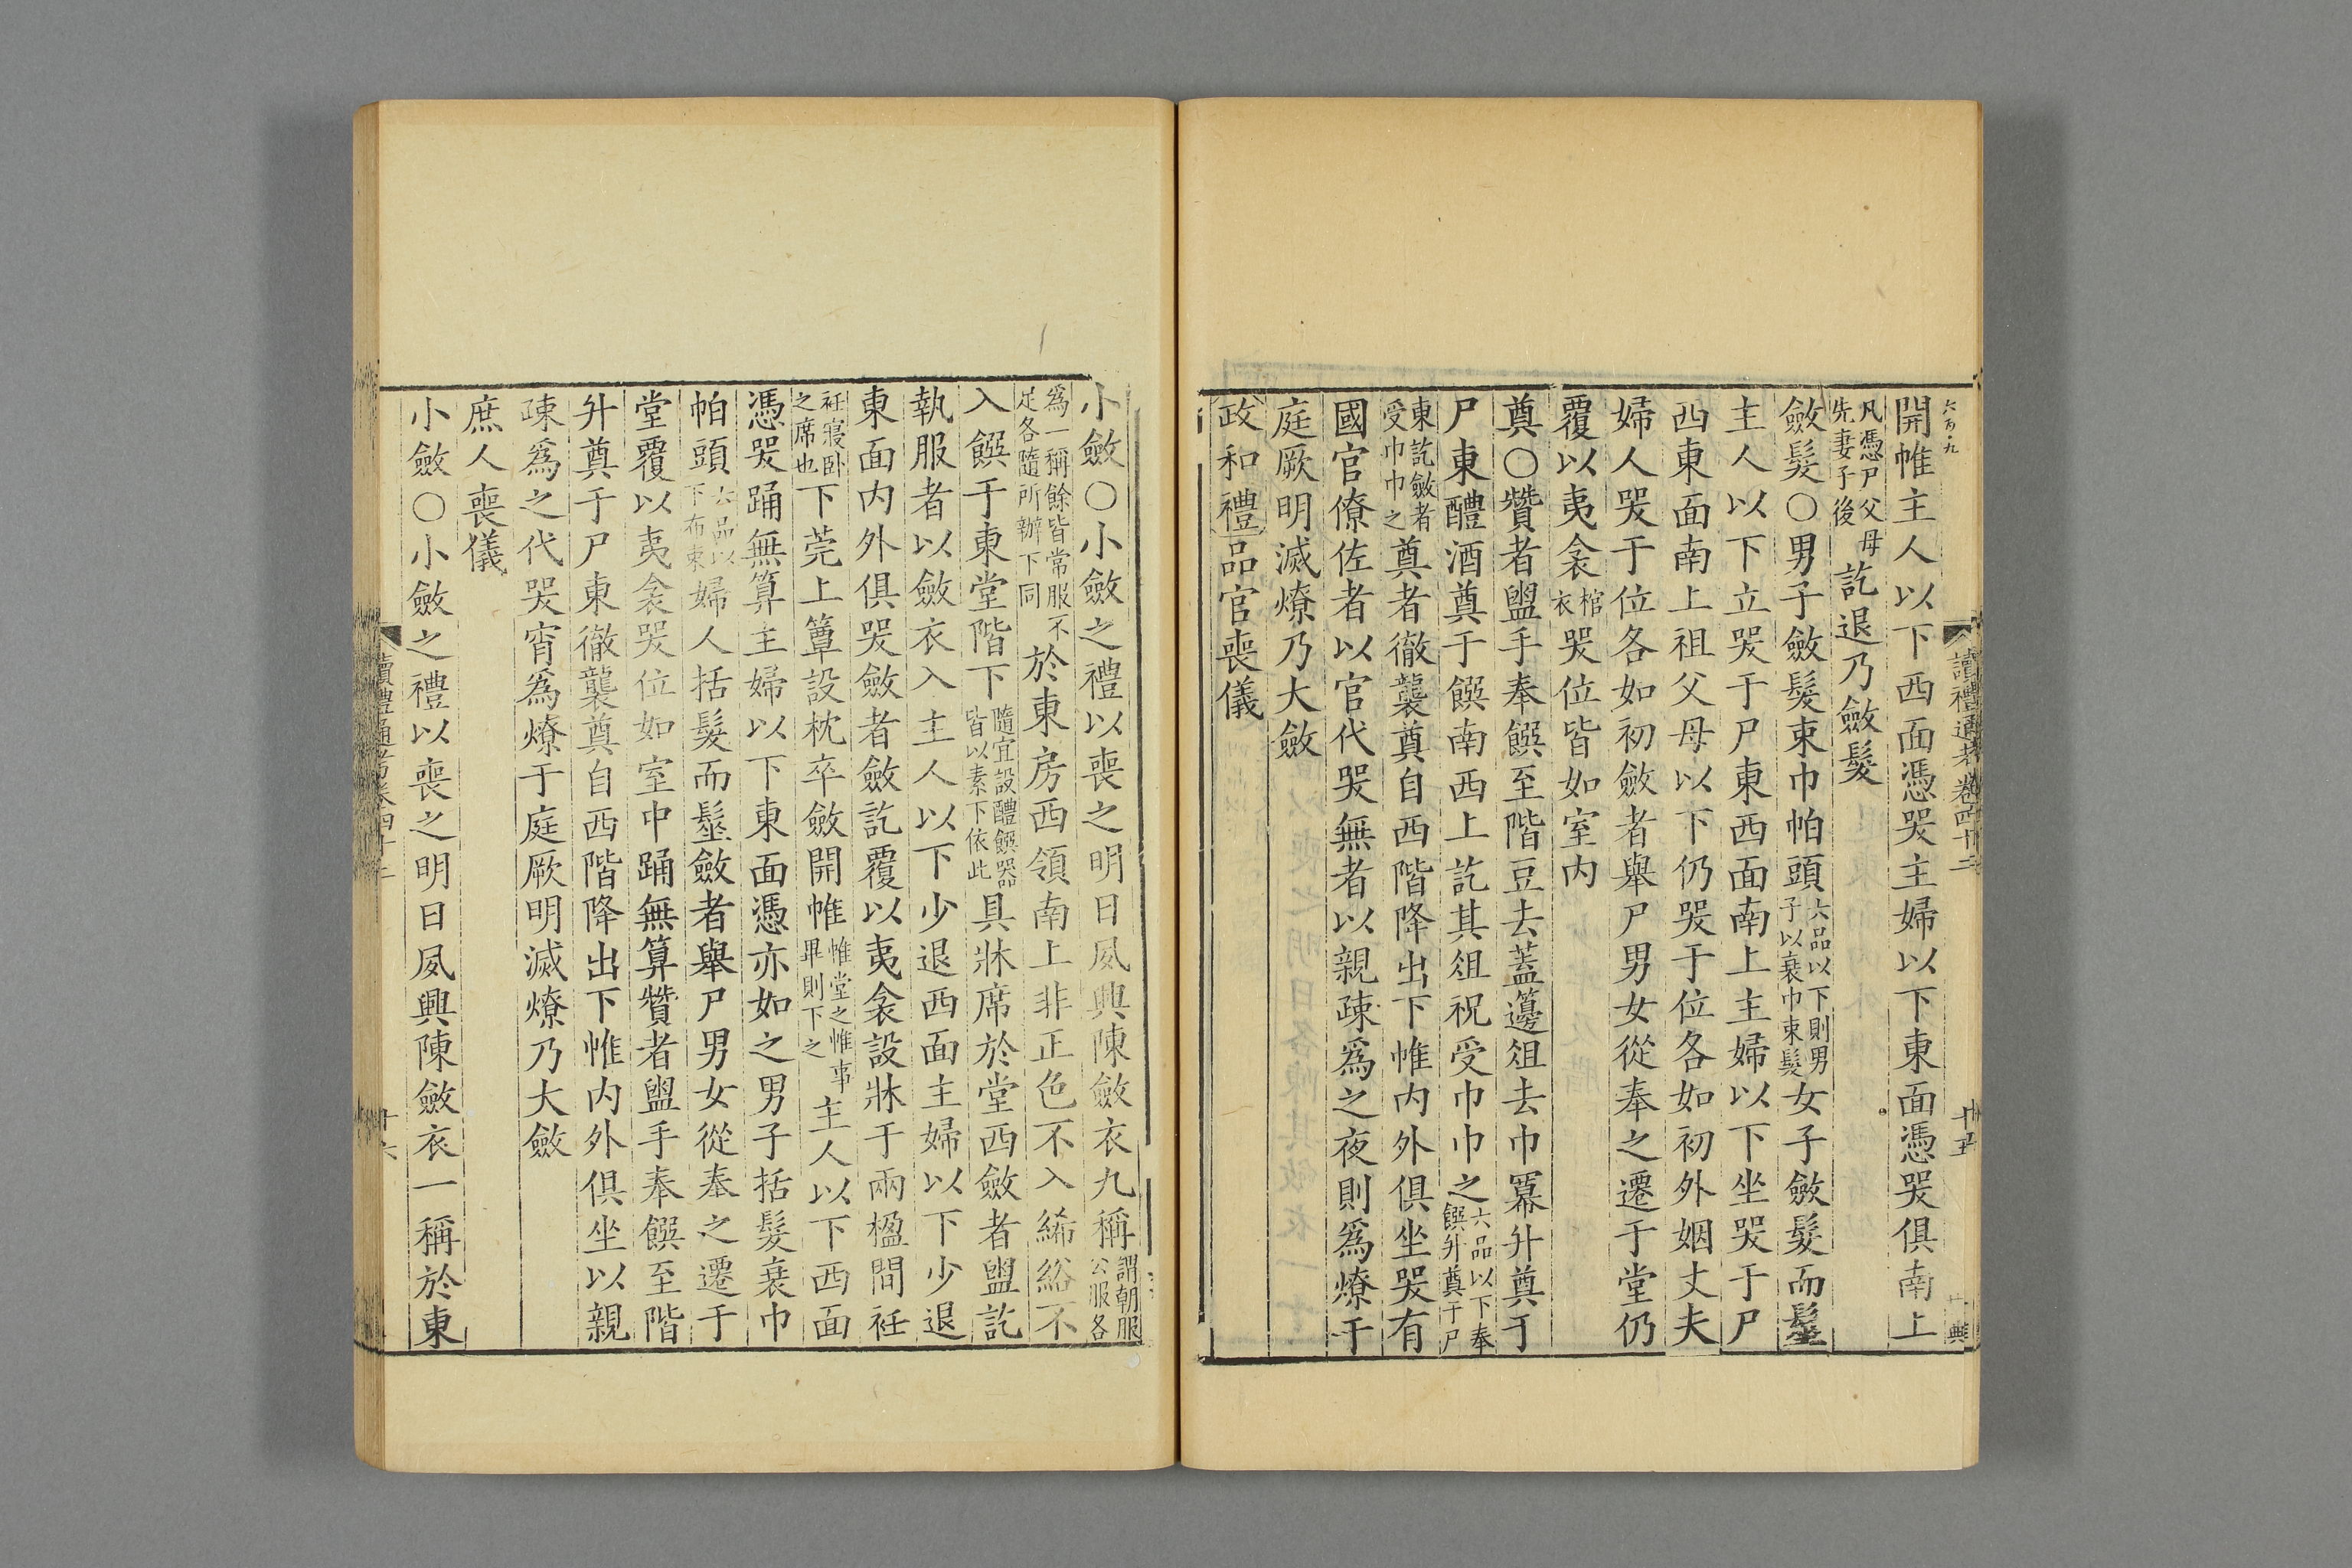 六百九
讀禮通考卷四十三
十五
開帷主人以下西面憑哭主婦以下東面憑哭俱南上
凡憑尸父母
先妻子後
訖退乃斂髮
斂髮○男子斂髮束巾帕頭
六品以下則男
子以衰巾束髮
女子斂髮而髽
主人以下立哭于尸東西面南上主婦以下坐哭于尸
西東面南上祖父母以下仍哭于位各如初外姻丈夫
婦人哭于位各如初斂者舉尸男女從奉之遷于堂仍
覆以夷衾
棺
衣
哭位皆如室内
奠○贊者盥手奉饌至階豆去蓋籩俎去巾冪升奠于
尸東醴酒奠于饌南西上訖其俎祝受巾巾之
六品以下奉
饌升奠于尸
東訖斂者
受巾巾之
奠者徹襲奠自西階降出下帷内外俱坐哭有
國官僚佐者以官代哭無者以親疎爲之夜則爲燎于
庭厥明滅燎乃大斂
政和禮品官喪儀
小斂○小斂之禮以喪之明日夙興陳斂衣九稱
謂朝服
公服各
爲一稱餘皆常服不
足各隨所辦下同
於東房西領南上非正色不入絺綌不
入饌于東堂階下
隨宜設醴饌器
皆以素下依此
具牀席於堂西斂者盥訖
執服者以斂衣入主人以下少退西面主婦以下少退
東面内外俱哭斂者斂訖覆以夷衾設牀于兩楹間衽
衽寢卧
之席也
下莞上簟設枕卒斂開帷
帷堂之帷事
畢則下之
主人以下西面
憑哭踊無算主婦以下東面憑亦如之男子括髮衰巾
帕頭
六品以
下布束
婦人括髮而髽斂者舉尸男女從奉之遷于
堂覆以夷衾哭位如室中踊無算贊者盥手奉饌至階
升奠于尸東徹襲奠自西階降出下帷内外俱坐以親
疎爲之代哭宵爲燎于庭厥明滅燎乃大斂
庶人喪儀
小斂○小斂之禮以喪之明日夙興陳斂衣一稱於東
讀禮通考卷四十三
十六